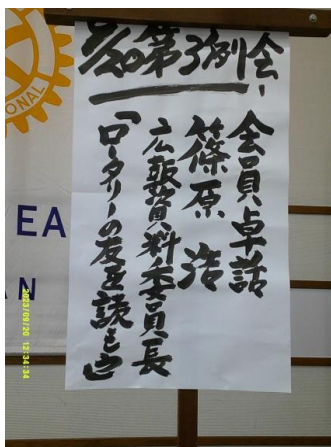 9/20第3例会
会員卓話
篠原 浩
広報資料委員長
「ロータリーの友を読もう」
ONAL
EA
AN
2023/09/20 12:34:34